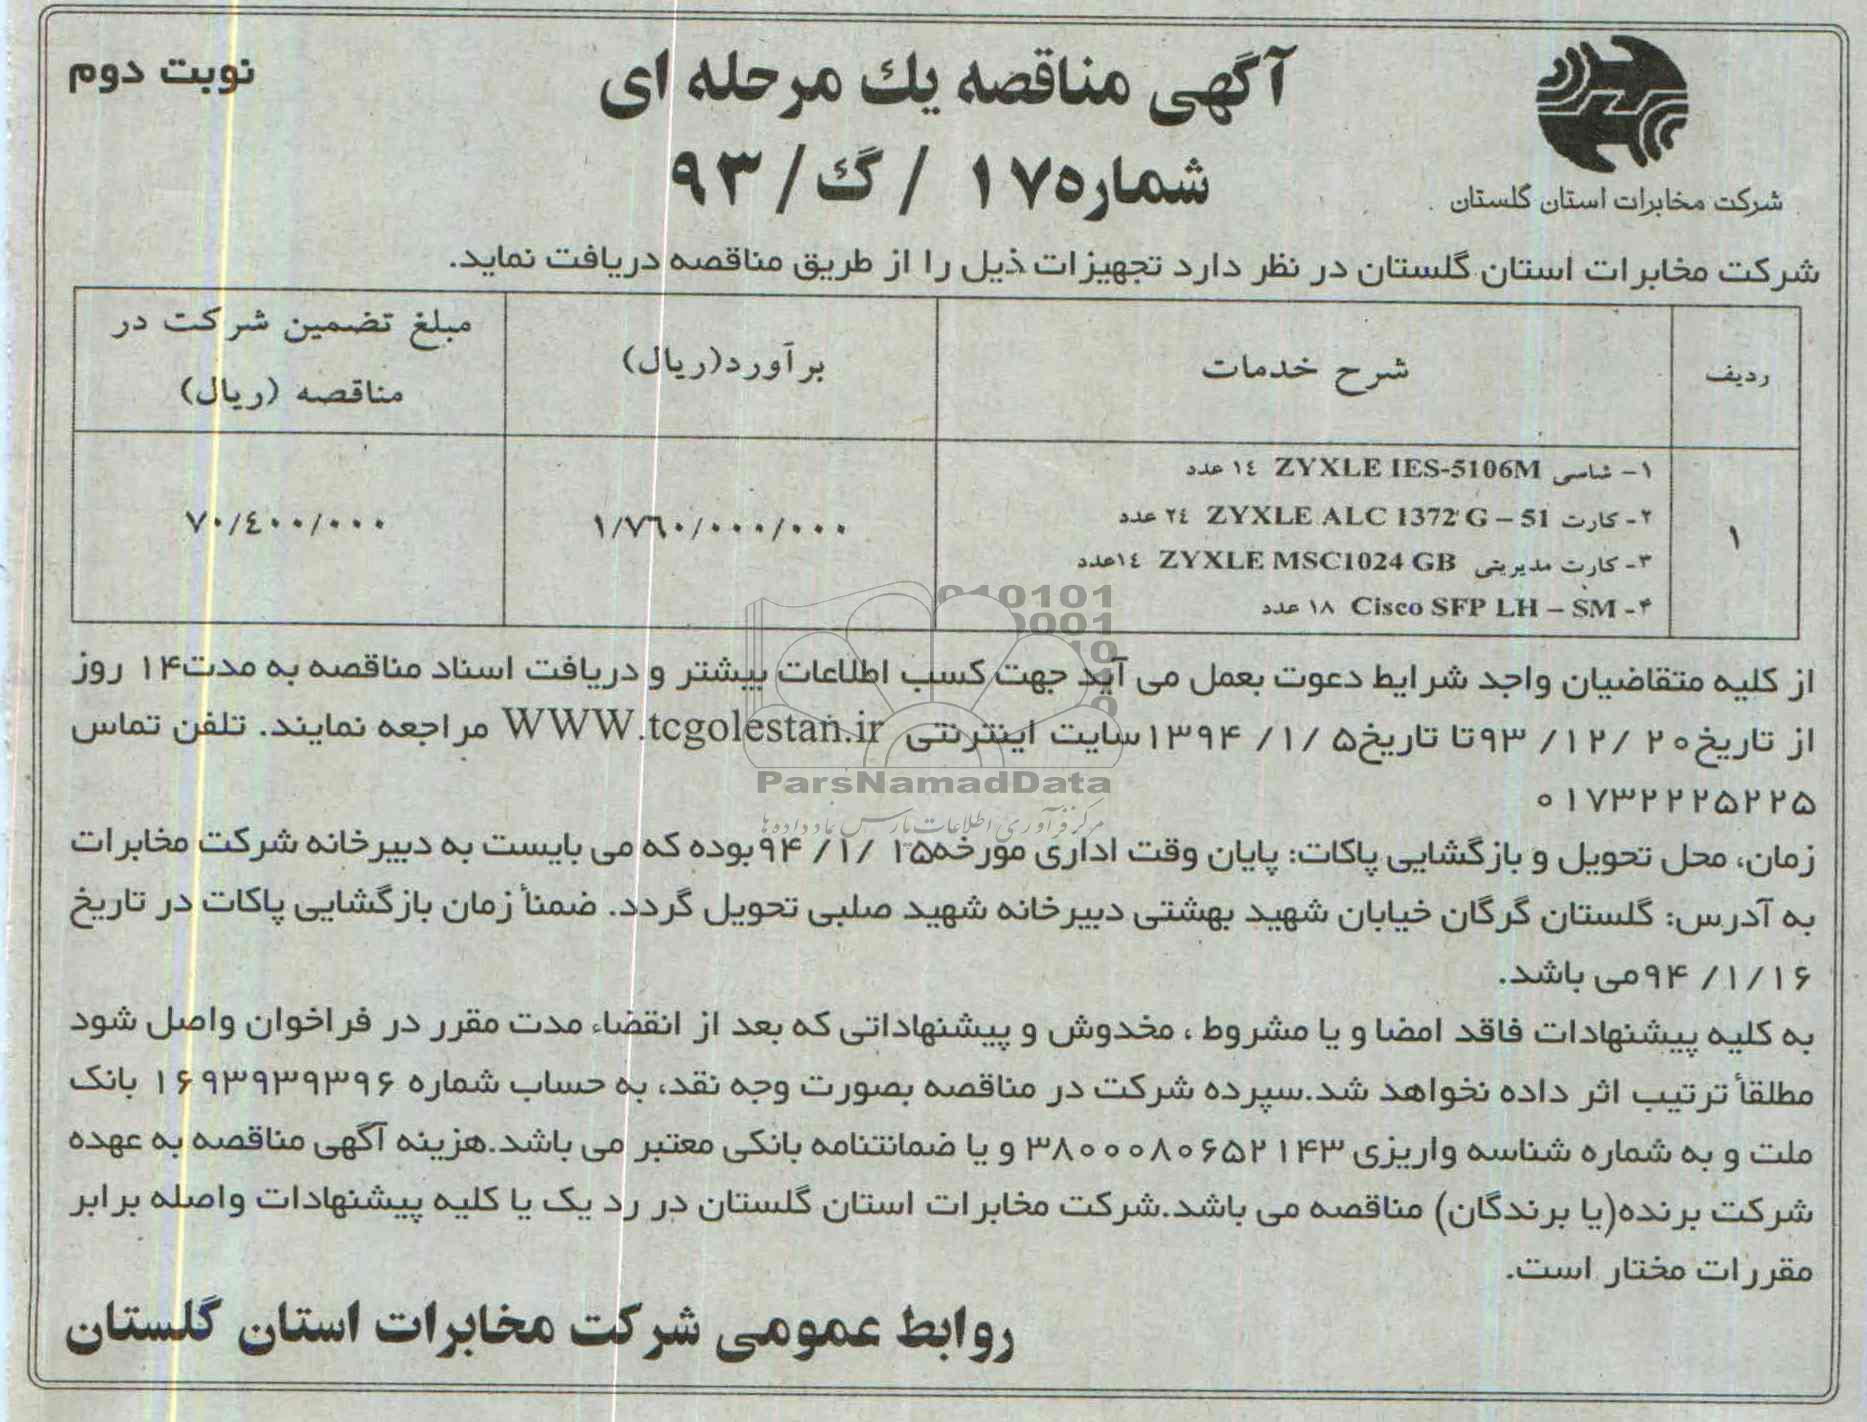 آگهی مناقصه یك مرحله ای
نوبت دوم
شماره۱۷ / گ/ ۹۳
شرکت مخابرات استان گلستان
شرکت مخابرات استان گلستان در نظر دارد تجهیزات ذیل را از طریق مناقصه دریافت نماید.
ردیف
شرح خدمات
برآورد(ریال)
مبلغ تضمین شرکت در
مناقصه (ریال)
۱
۱- شاسی ZYXLE IES-5106M ۱٤ عدد
۲- کارت ZYXLE ALC 1372 G – 51 ۲٤ عدد
۳- کارت مدیریتی ZYXLE MSC1024 GB ۱٤عدد
۴- Cisco SFP LH – SM ۱۸ عدد
۱/۷٦۰/۰۰۰/۰۰۰
۷۰/٤۰۰/۰۰۰
از کلیه متقاضیان واجد شرایط دعوت بعمل می آید جهت کسب اطلاعات بیشتر و دریافت اسناد مناقصه به مدت۱۴ روز
از تاریخ۲۰ /۱۲/ ۹۳تا تاریخ۵ /۱/ ۱۳۹۴سایت اینترنتی WWW.tcgolestan.ir مراجعه نمایند. تلفن تماس
۰۱۷۳۲۲۲۵۲۲۵
زمان، محل تحویل و بازگشایی پاکات: پایان وقت اداری مورخه۱۵ /۱/ ۹۴بوده که می بایست به دبیرخانه شرکت مخابرات
به آدرس: گلستان گرگان خیابان شهید بهشتی دبیرخانه شهید صلبی تحویل گردد. ضمناً زمان بازگشایی پاکات در تاریخ
۱۶/۱/ ۹۴می باشد.
به کلیه پیشنهادات فاقد امضا و یا مشروط ، مخدوش و پیشنهاداتی که بعد از انقضاء مدت مقرر در فراخوان واصل شود
مطلقاً ترتیب اثر داده نخواهد شد.سپرده شرکت در مناقصه بصورت وجه نقد، به حساب شماره ۱۶۹۳۹۳۹۳۹۶ بانک
ملت و به شماره شناسه واریزی ۳۸۰۰۰۸۰۶۵۲۱۴۳ و یا ضمانتنامه بانکی معتبر می باشد.هزینه آگهی مناقصه به عهده
شرکت برنده(یا برندگان) مناقصه می باشد.شرکت مخابرات استان گلستان در رد یک یا کلیه پیشنهادات واصله برابر
مقررات مختار است.
روابط عمومی شرکت مخابرات استان گلستان
ParsNamadData
مرکز فرآوری اطلاعات پارس نماد داده ها